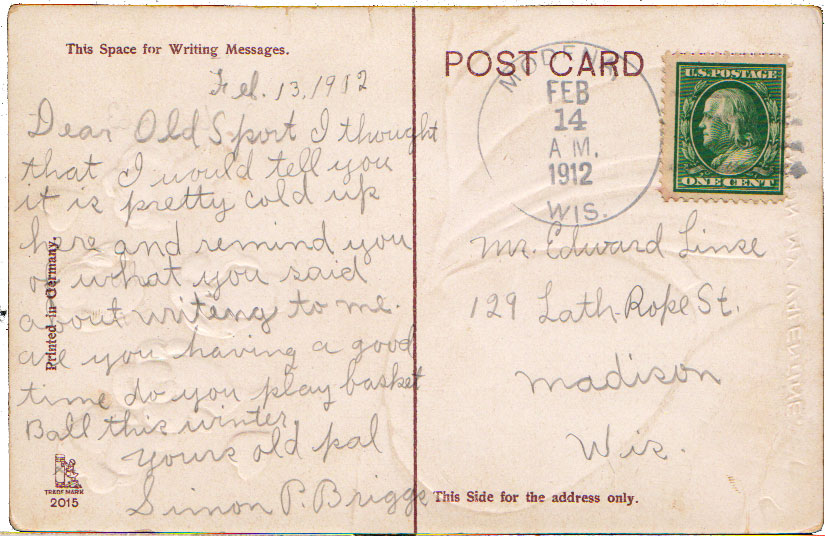 This Space for Writing Messages.
Feb. 13, 1912
Dear Old Sport I thought
that I would tell you
it is pretty cold up
here and remind you
of what you said
about writing to me.
are you having a good
time do you play basket
Ball this winter.
yours old pal
Simon P. Briggs
Printed in Germany.
TRADE MARK
2015
POST CARD
MODENA
FEB
14
A M.
1912
WIS.
U.S. POSTAGE
ONE CENT
Mr. Edward Linse
129 Lath-Rope St.
Madison
Wis.
This Side for the address only.
MY VALENTINE